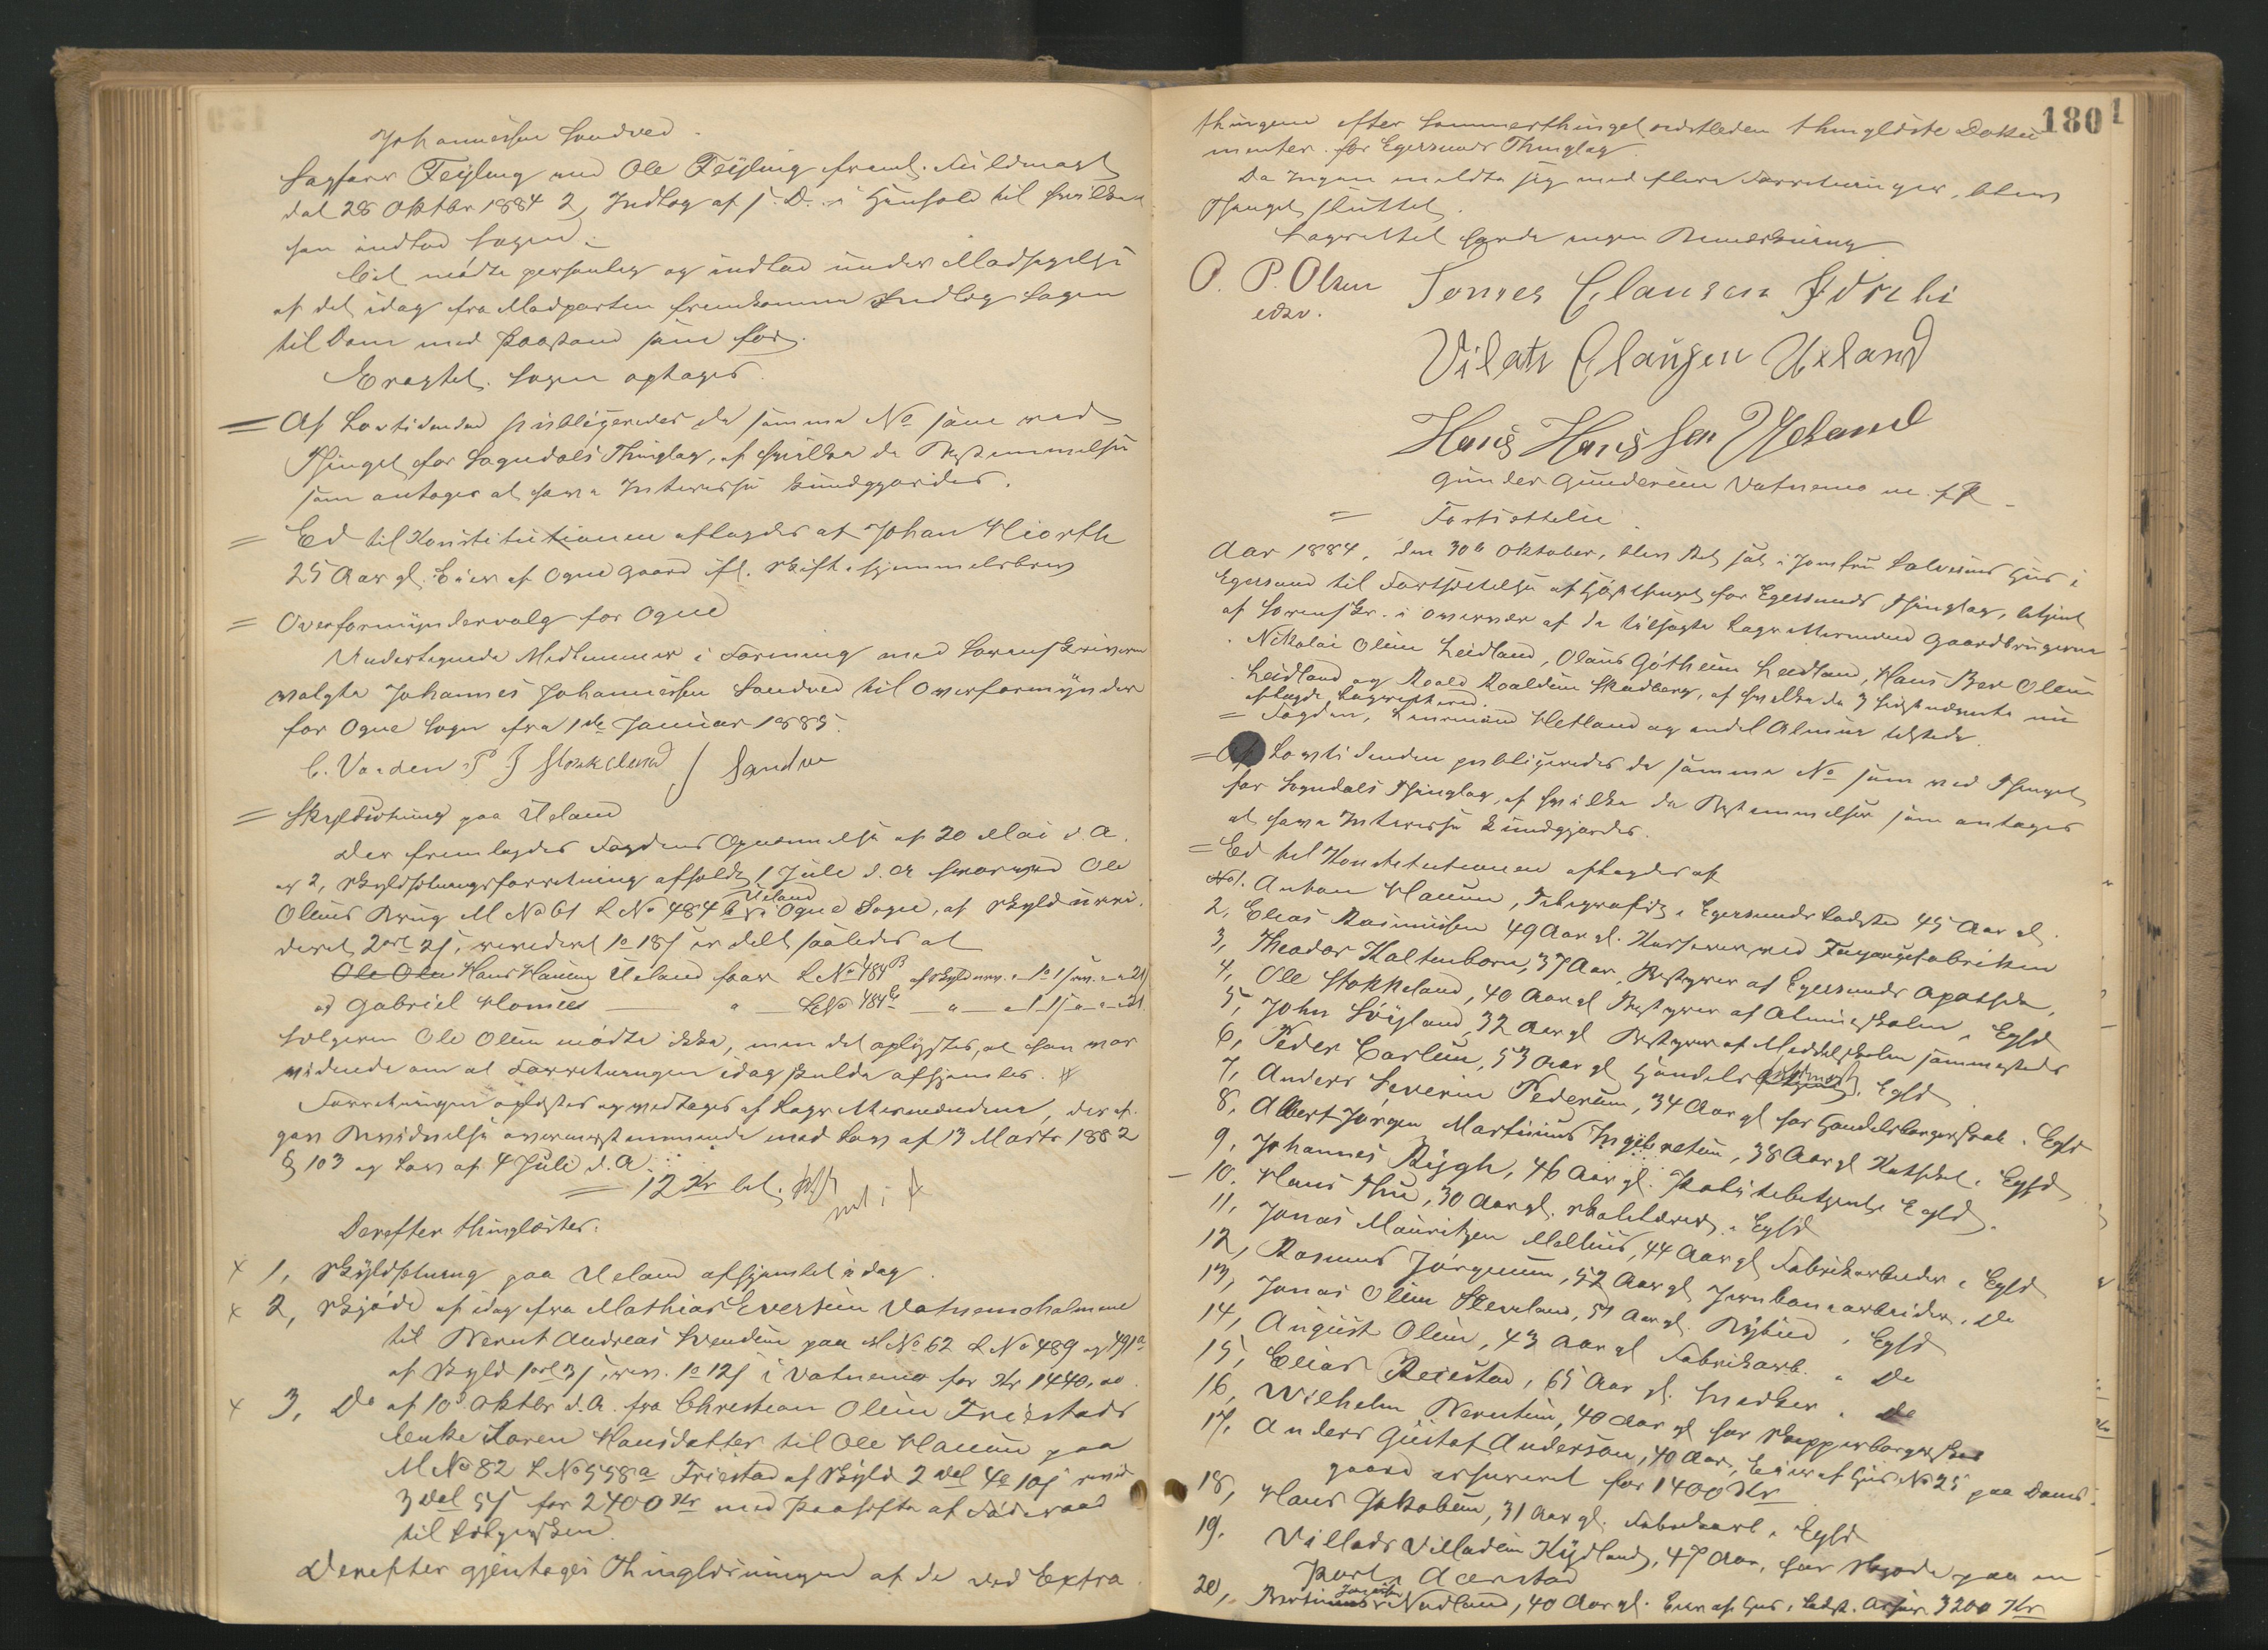 Johannessen Sandved.
Sagfører Feÿling med Ole Feÿling freml. Fuldmagt
dat 28 Oktbr 1884 2, Indlæg af s. D. i Henhold til hvilken
han indlod Sagen.
Cit. mødte personlig og indlod under Modsigelse
af det idag fra Modparten fremkomne Indlæg Sagen
til Dom med Paastand som før.
Eragtet. Sagen optages.
= Af Lovtidenden publiceredes de samme No som ved
Thinget for Sogndals Thinglag, af hvilke de Bestemmelser
som antages at have Interesse kundgjordes.
= Ed til Konstitutionen aflagdes af Johan Hiorth
25 Aar gl. Eier af Ogne Gaard ifl. Skiftehjemmelsbrev
= Overformÿndervalg for Ogne
Undertegnede Medlemmer i Forening med Sorenskriveren
valgte Johannes Johannessen Sandved til Overformÿnder
for Ogne Sogn fra 1ste Januar 1885.
C. Varden P J Stokkeland J Sandve
= Skÿlddeling paa Ueland
Der fremlagdes Fogdens Opnævnelse af 20 Mai d. A.
og 2, Skÿlddelingsforretning afholdt 1 Juli d. A hvorved Ole
Olsens Brug M No 61 L No 484 b Ueland i Ogne Sogn, af Skÿld urevi-
deret 2 ort 2 s, revideret 1 o 18 s er delt saaledes at
Ole Olsen Hans Hansen Ueland faar L No 484 B af Skÿld urev. 1 o 1 s rev. 21
og Gabriel Homse — " — L No 484 c — " — 1 1 s 21
Sælgeren Ole Olsen mødte ikke, men det oplÿstes, at han var
vidende om at Forretningen idag skulde afhjemles. #
Forretningen oplæstes og vedtoges af Lagrettemændene, der af-
gav Bevidnelse overensstemmende med Lov af 13 Marts 1882
§ 103 og Lov af 4 Juli d. A.
= 12 Kr bet.
Derefter thinglæstes.
x 1, Skÿlddeling paa Ueland afhjemlet idag.
x 2, Skjøde af idag fra Mathias Evertsen Vatnemoholmene
til Bernt Andreas Svendsen paa M No 62 L No 489 og 491 a
af Skÿld 1 ort 3 s, rev. 1 o 12 s i Vatnemo for Kr 1440,00.
x 3, Do af 10 Oktbr d. A. fra Christian Olsen Friestads
Enke Karen Hansdatter til Ole Hansen paa
M No 82 L No 558 a Friestad af Skÿld 2 dal 4 o 10 s revid
3 dal 5 s for 2400 Kr med Paahefte af Føderaad
til Sælgersken.
Derefter gjentoges Thinglæsningen af de ved Extra
180 1
thingene efter Sommerthinget sidstleden thinglæste Doku
menter. for Egersunds Thinglag.
Da Ingen meldte sig med flere Forretninger, blev
Thinget sluttet.
Lagrettet havde ingen Bemærkning
O. P. Olsen
edsv.
Tonnes Clausen
Vilats Clausen Ueland
Hans Hanssen Ueland
Gunder Gundersen Vatnemo m. f. P.
= Fortsættelse.
Aar 1884, den 30te Oktober, blev Ret sat i Jomfru Salvesens Hus i
Egersund til Fortsættelse af Høstthinget for Egersunds Thinglag, betjent
af Sorenskr. i Overvær af de tilsagte Lagrettemænd Gaardbrugerne
Nikolai Olsen Leidland, Olaus Gøthesen Leidland, Hans Per Olsen
Leidland og Roald Roaldsen Skadberg, af hvilke de 3 sidstnævnte nu
aflagde Lagretteed.
= Fogden, Lensmand Hetland og endel Almue tilstede.
= Af Lovtidenden publiceredes de samme No som ved Thinget
for Sogndals Thinglag, af hvilke de Bestemmelser som antages
at have Interesse kundgjordes.
= Ed til Konstitutionen aflagdes af
No 1. Anton Hansen, Telegrafist i Egersunds Ladested 45 Aar gl.
2, Elias Rasmussen 49 Aar gl. Kasserer ved Fayancefabriken
3, Theodor Kaltenborn, 37 Aar, Bestyrer af Egersunds Apothek,
4, Ole Stokkeland, 40 Aar gl Bestyrer af Almueskolen i Egsd
5, John Løÿland, 32 Aar gl Bestyrer af Middelskolen sammesteds
6, Peder Carlsen, 53 Aar gl Handelsfuldmægt. Egsd
7, Anders Severin Pedersen, 34 Aar gl har Handelsborgerskab i Egsd
8, Albert Jørgen Martinius Ingebretsen, 38 Aar gl Kudsk i Egsd
9, Johannes Rÿgh, 46 Aar gl. Politibetjent i Egsd.
10, Hans Thu, 30 Aar gl. Skolelærer i Egsd
11, Jonas Mauritzen Mellus, 44 Aar gl Fabrikarbeider i Egsd
12, Rasmus Jørgensen, 52 Aar gl Jernbanearbeider. Do
13, Jonas Olsen Steenland, 51 Aar gl. Bÿbud i Egsd
14, August Olsen, 43 Aar gl Fabrikarb. " Do
15, Elias Reiestad, 65 Aar gl. Snedker. Do
16, Wilhelm Berntsen, 40 Aar gl har Skipperborgerskab
17, Anders Gustaf Anderson, 40 Aar, Eier af Hus No 25 paa Dams-
gaard assureret for 1400 Kr
18, Hans Jakobsen, 31 Aar gl. Fabrikarb. i Egsd
19. Villads Villadsen Kÿdland, 47 Aar, har Skjøde paa en
Part i Aarstad
20, Bertinius Jonassen Nodland, 40 Aar gl. Eier af Hus i Ladst. Assur 3200 Kr